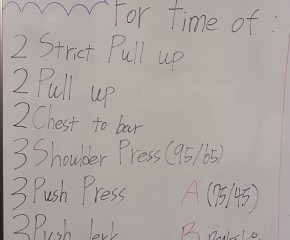 For time of:
2 Strict Pull up
2 Pull up
2 Chest to bar
3 Shoulder Press (95/65)
3 Push Press A (75/45)
3 Push Jerk B